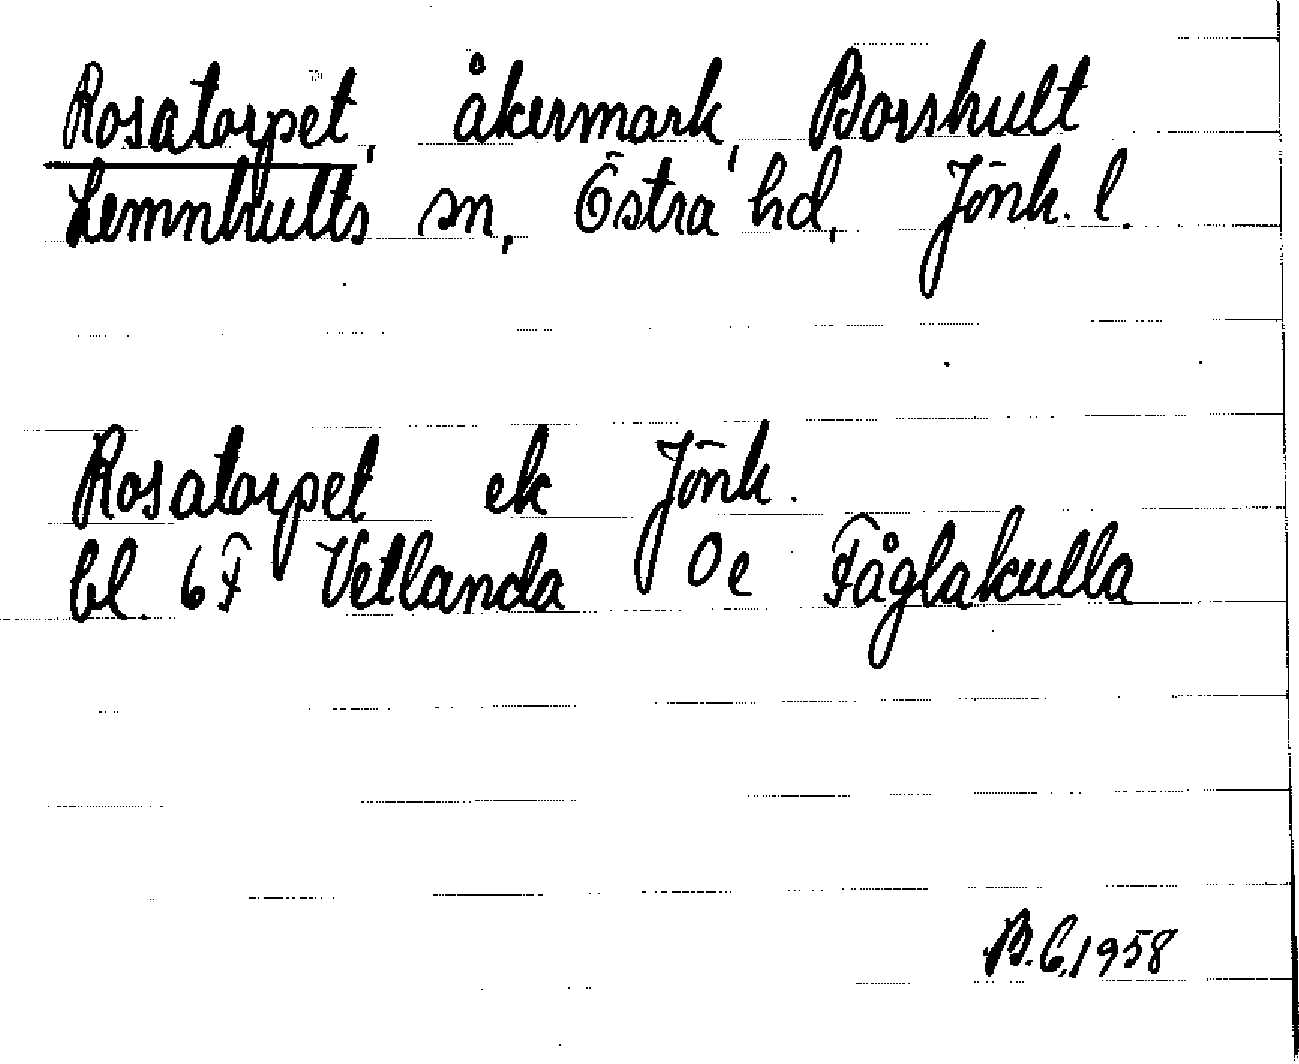 Rosatorpet, åkermark, Borshult
Lemnhults sn, Östra hd, Jönk. l.
Rosatorpet ek Jönk.
bl. 6F Vetlanda 0e Fåglakulla
B.G. 1958